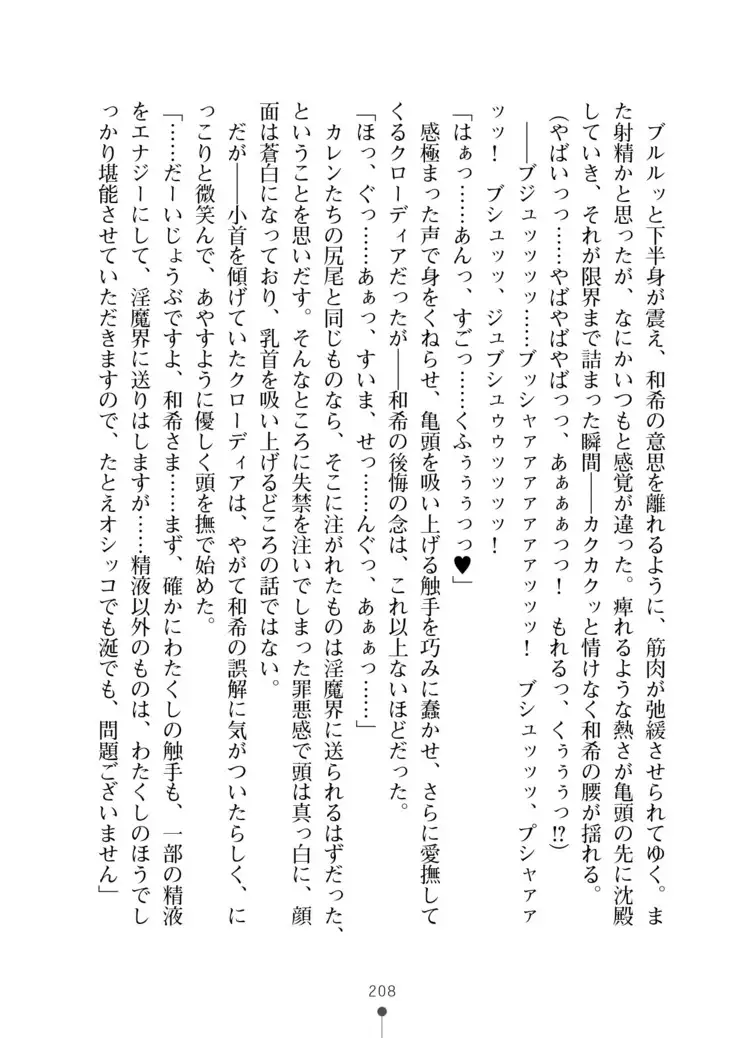 ブルルッと下半身が震え、和希の意思を離れるように、筋肉が弛緩させられてゆく。ま
た射精かと思ったが、なにかいつもと感覚が違った。痺れるような熱さが亀頭の先に沈殿
していき、それが限界まで詰まった瞬間――カクカクッと情けなく和希の腰が揺れる。
（やばいっっ……やばやばやばっっ、あぁぁぁっっ！　もれるっ、くぅぅぅっ!?）
　――ブジュッッッッ……ブッシャァァァァァァァァッッッ！　ブシュッッッ、プシャァァ
ッッ！　ブシュッッ、ジュブシュゥゥッッッッ！
「はぁっ……あんっ、すごっ……くふぅぅぅっっ♥」
　感極まった声で身をくねらせ、亀頭を吸い上げる触手を巧みに蠢かせ、さらに愛撫して
くるクローディアだったが――和希の後悔の念は、これ以上ないほどだった。
「ほっ、ぐっ……あぁっ、すいま、せっ……んぐっ、あぁぁっ……」
　カレンたちの尻尾と同じものなら、そこに注がれたものは淫魔界に送られるはずだった、
ということを思いだす。そんなところに失禁を注いでしまった罪悪感で頭は真っ白に、顔
面は蒼白になっており、乳首を吸い上げるどころの話ではない。
　だが――小首を傾げていたクローディアは、やがて和希の誤解に気がついたらしく、に
っこりと微笑んで、あやすように優しく頭を撫で始めた。
「……だーいじょうぶですよ、和希さま……まず、確かにわたくしの触手も、一部の精液
をエナジーにして、淫魔界に送りはしますが……精液以外のものは、わたくしのほうでし
っかり堪能させていただきますので、たとえオシッコでも涎でも、問題ございません」
208